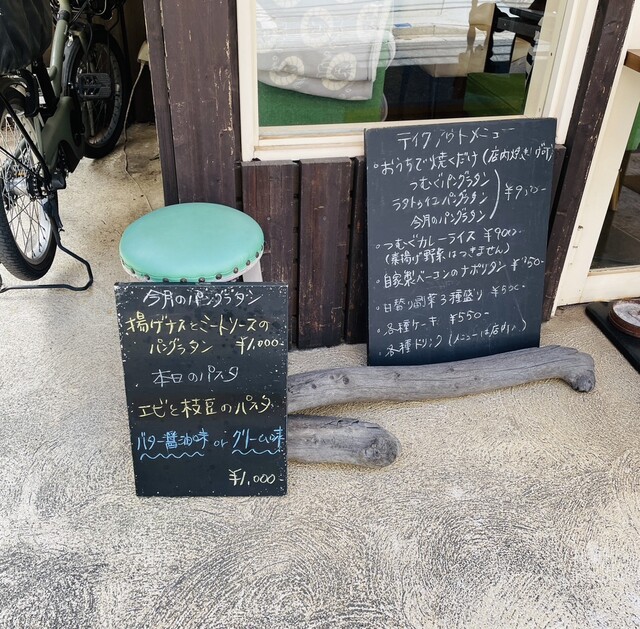 今月のパングラタン
揚げナスとミートソースの
パングラタン ¥1,000-
本日のパスタ
エビと枝豆のパスタ
バター醤油味 or クリーム味
¥1,000-
テイクアウトメニュー
・おうちで焼くだけ(店内焼き
つむぐパングラタン
パングラタン
今月のパングラタン
・つむぐカレーライス ¥900-
(素揚げ野菜はつきません)
・自家製ベーコンのナポリタン
・日替り副菜3種盛り ¥500-
・各種ケーキ ¥550-
・各種ドリンク(メニューは店内に)